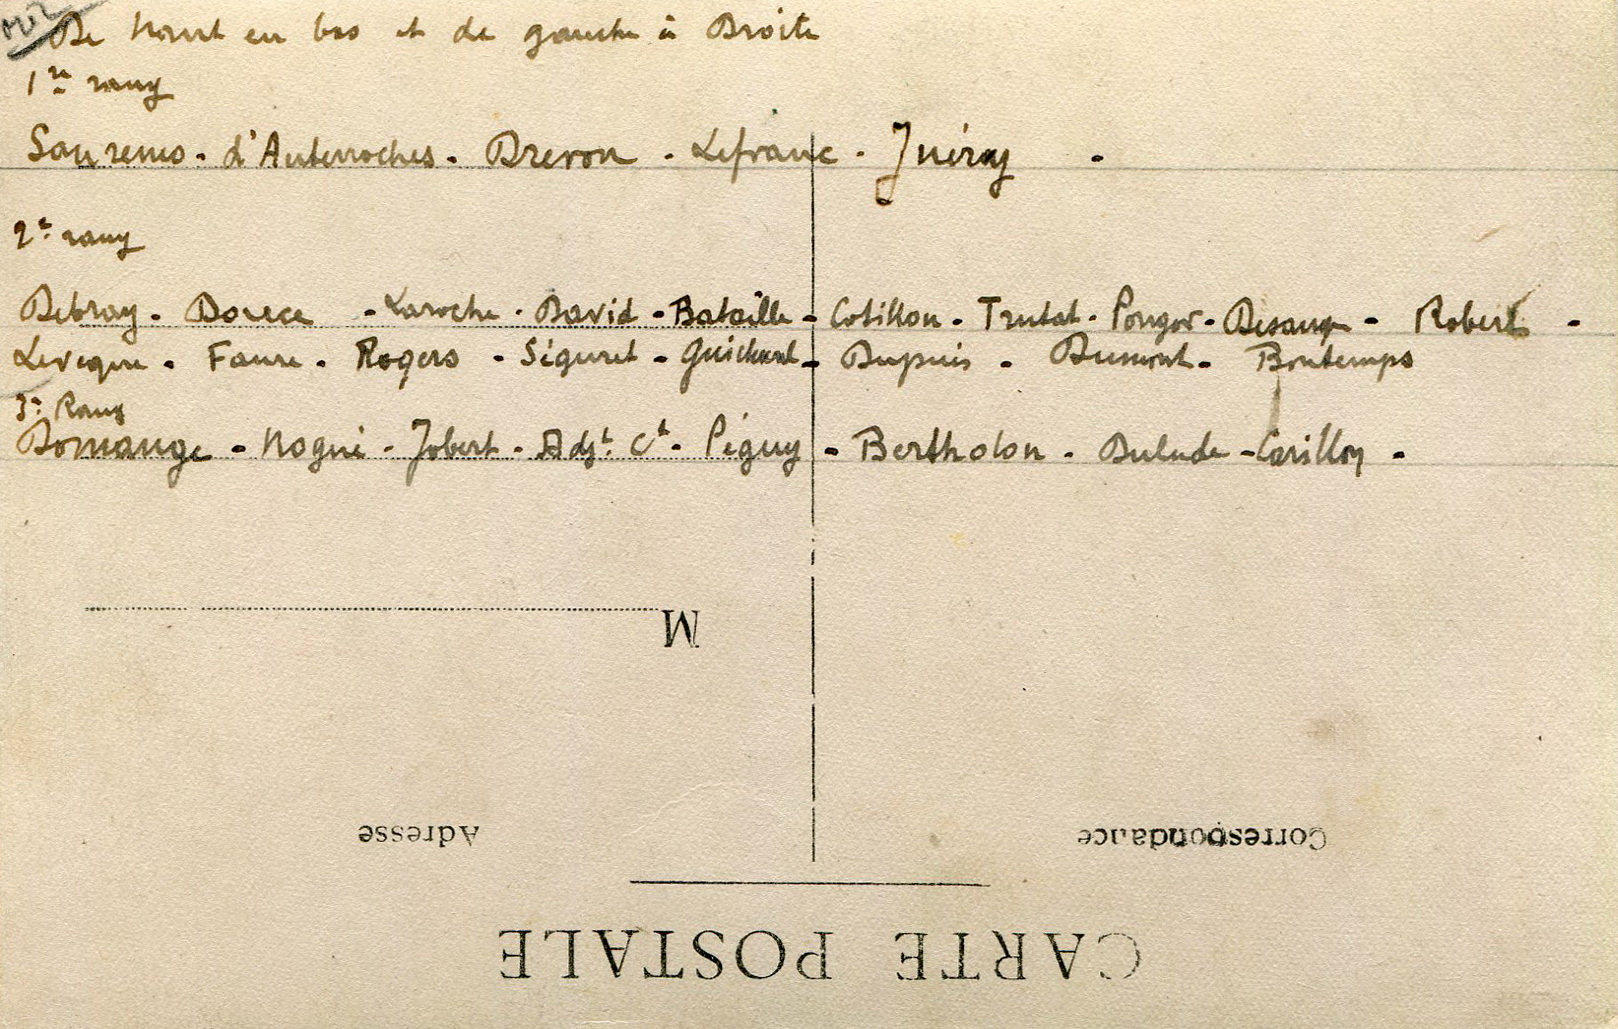 De Haut en bas et de gauche à Droite
1re rang
Sauremo - d'Auterroches - Dreron - Lefranc - Juéry -
2e rang
Debray - Douece - Laroche - David - Bataille - Cotillon - Trutat - Pougor - Desauge - Robert -
Leveque - Faure - Rogero - Séguret - Guichard - Dupuis - Dumont - Bontemps
3e Rang
Domange - Nogué - Jobert - Adjt. Ct - Péguy - Bertholon - Dulude - Carillon -
M
Adresse
Correspondance
CARTE POSTALE